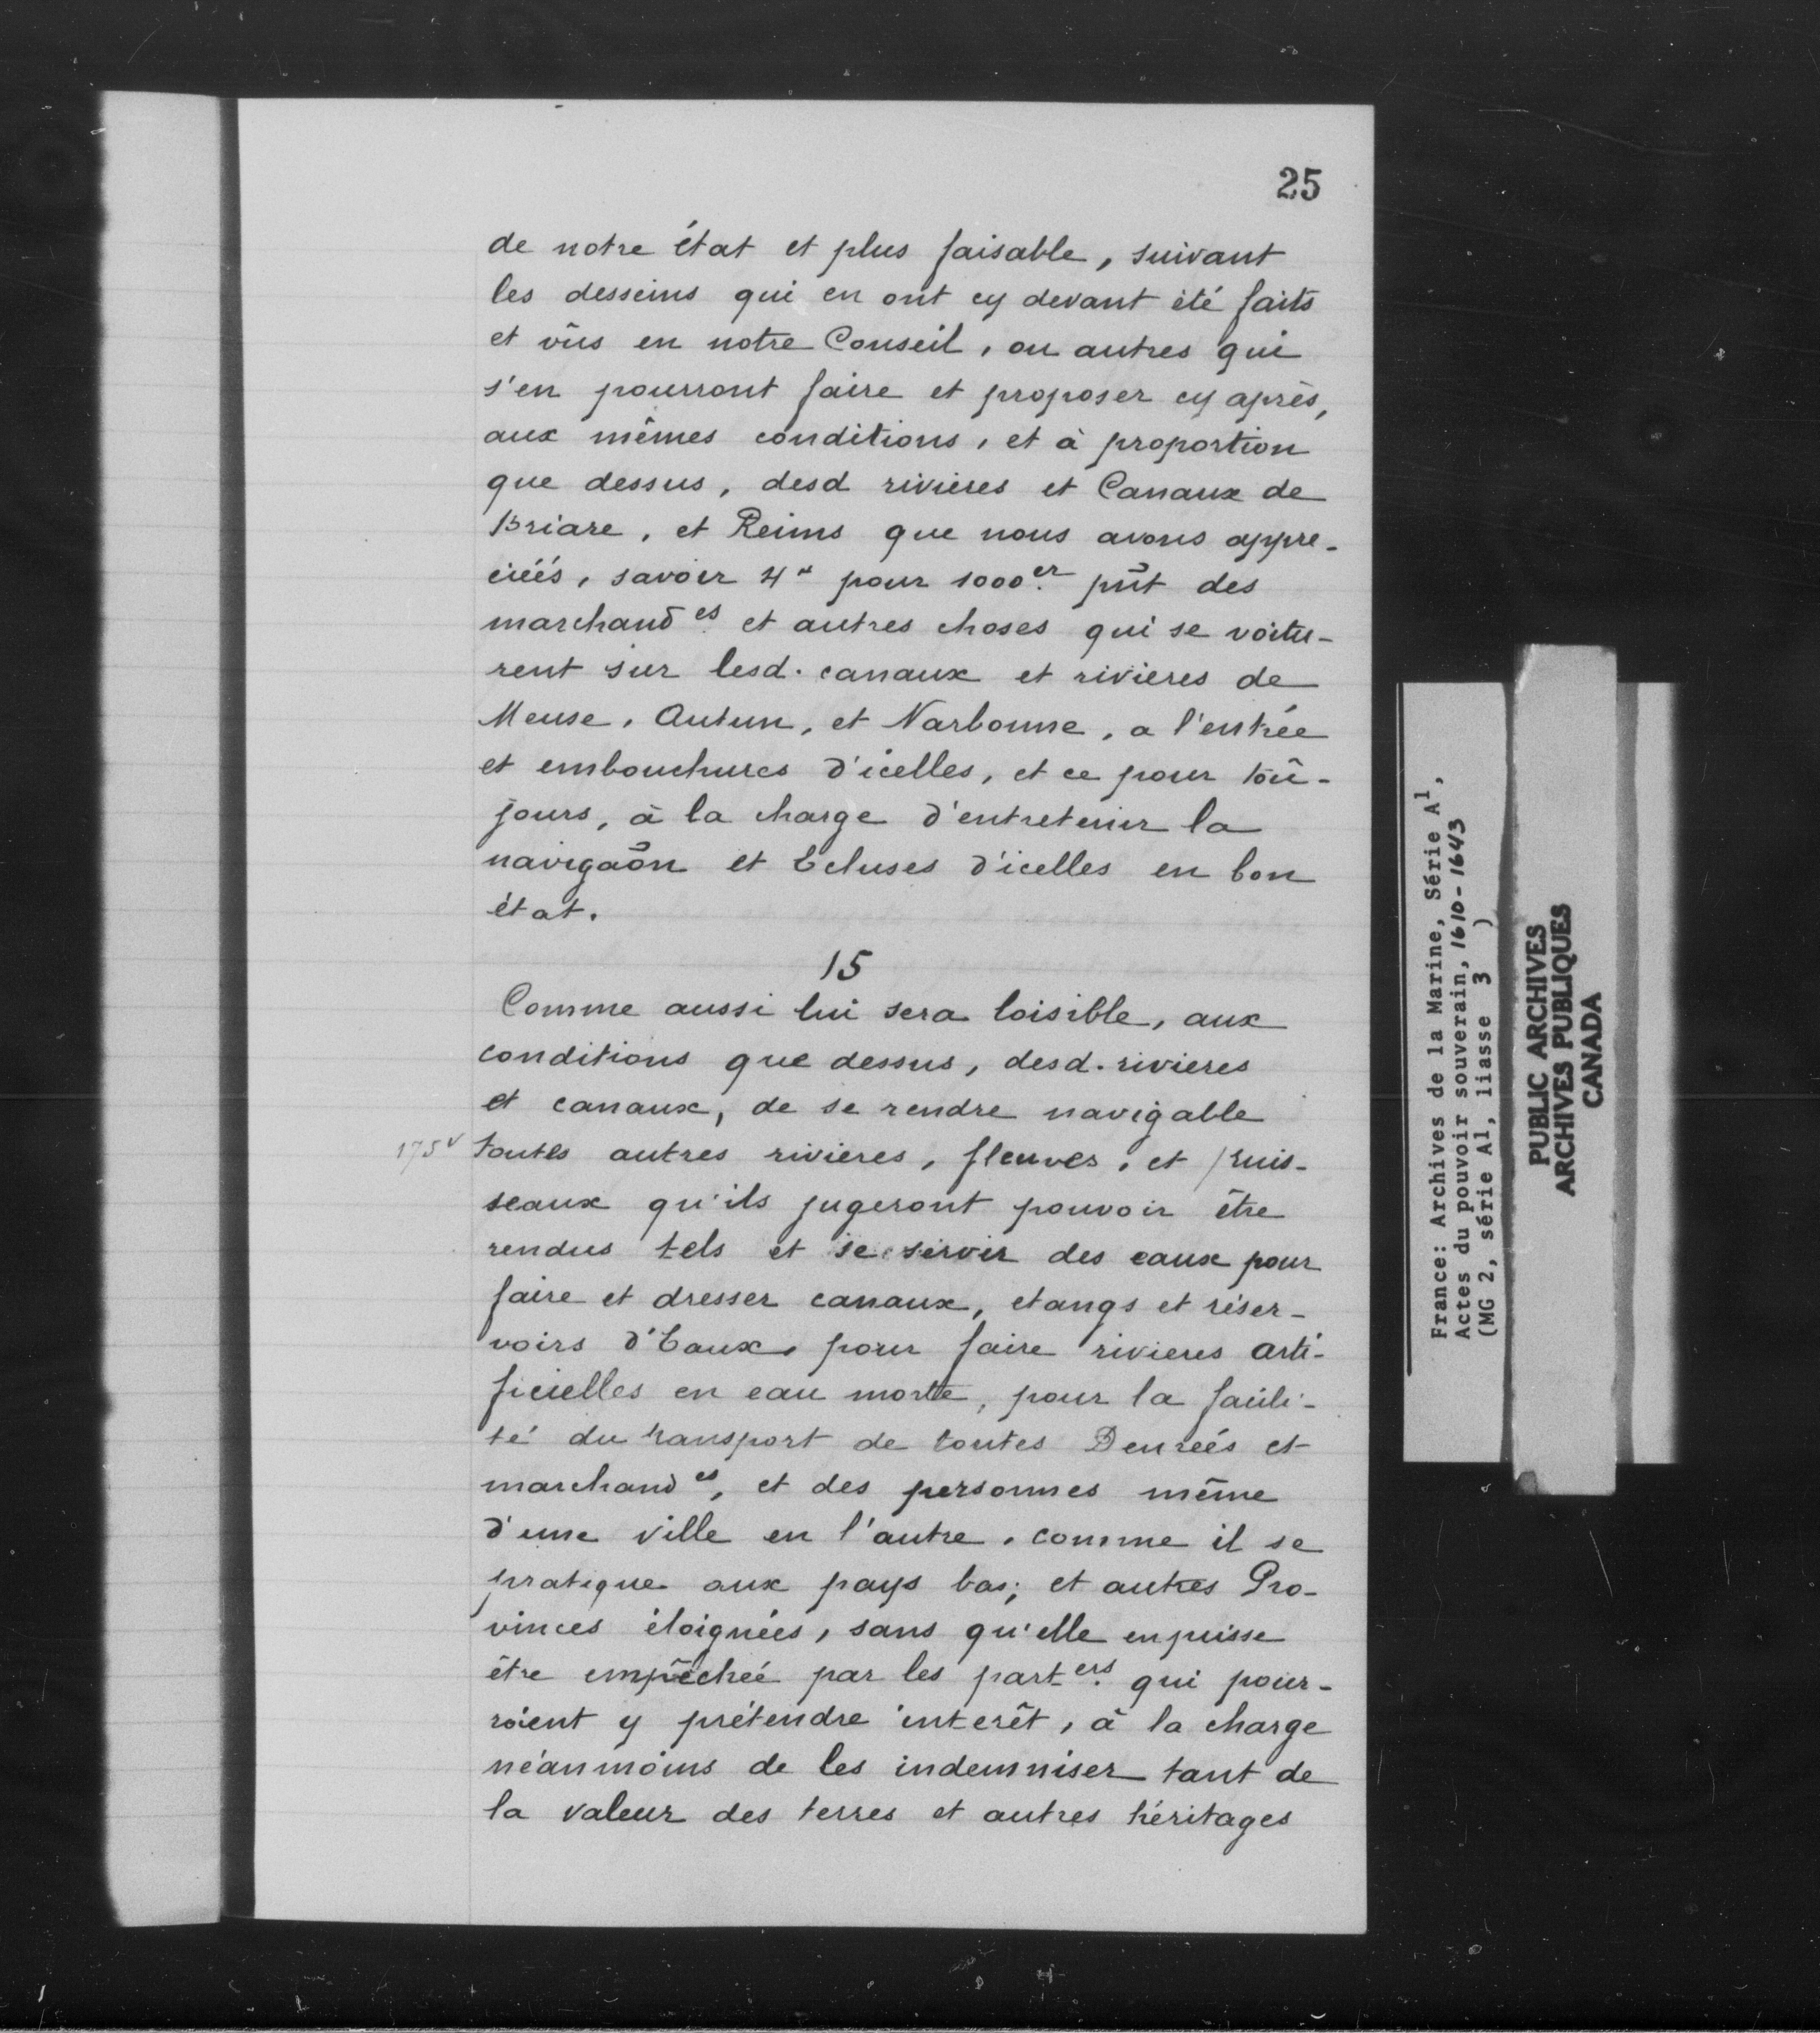 25
de notre état et plus faisable, suivant
les desseins qui en ont cy devant été faits
et vûs en notre Conseil, ou autres qui
s'en pourront faire et proposer cy après,
aux mêmes conditions, et à proportion
que dessus, desd rivieres et Canaux de
Briare, et Reims que nous avons appre-
ciéés, savoir 4 pour 1000er pnt des
marchandes et autres choses qui se voitu-
rent sur lesd. canaux et rivieres de
Meuse, Autun, et Narbonne, a l'entrée
et embouchures d'icelles, et ce pour toû-
jours, à la charge d'entretenir la
navigaôn et Ecluses d'icelles en bon
état.
15
Comme aussi lui sera loisible, aux
conditions que dessus, desd. rivieres
et canaux, de se rendre navigable
175v toutes autres rivieres, fleuves, et ruis-
seaux qu'ils jugeront pouvoir être
rendus tels et se servir des eaux pour
faire et dresser canaux, etangs et réser-
voirs d'Eaux, pour faire rivieres arti-
ficielles en eau morte, pour la facili-
té du transport de toutes Denreés et
marchandes, et des personnes même
d'une ville en l'autre, comme il se
pratique aux pays bas; et autres Pro-
vinces éloignées, sans qu'elle en puisse
être empêcheé par les part.ers qui pour-
roient y prétendre interêt, à la charge
néanmoins de les indemniser tant de
la valeur des terres et autres héritages
France: Archives de la Marine, Série A1,
Actes du pouvoir souverain, 1610-1643
(MG 2, série A1, liasse 3 )
PUBLIC ARCHIVES
ARCHIVES PUBLIQUES
CANADA